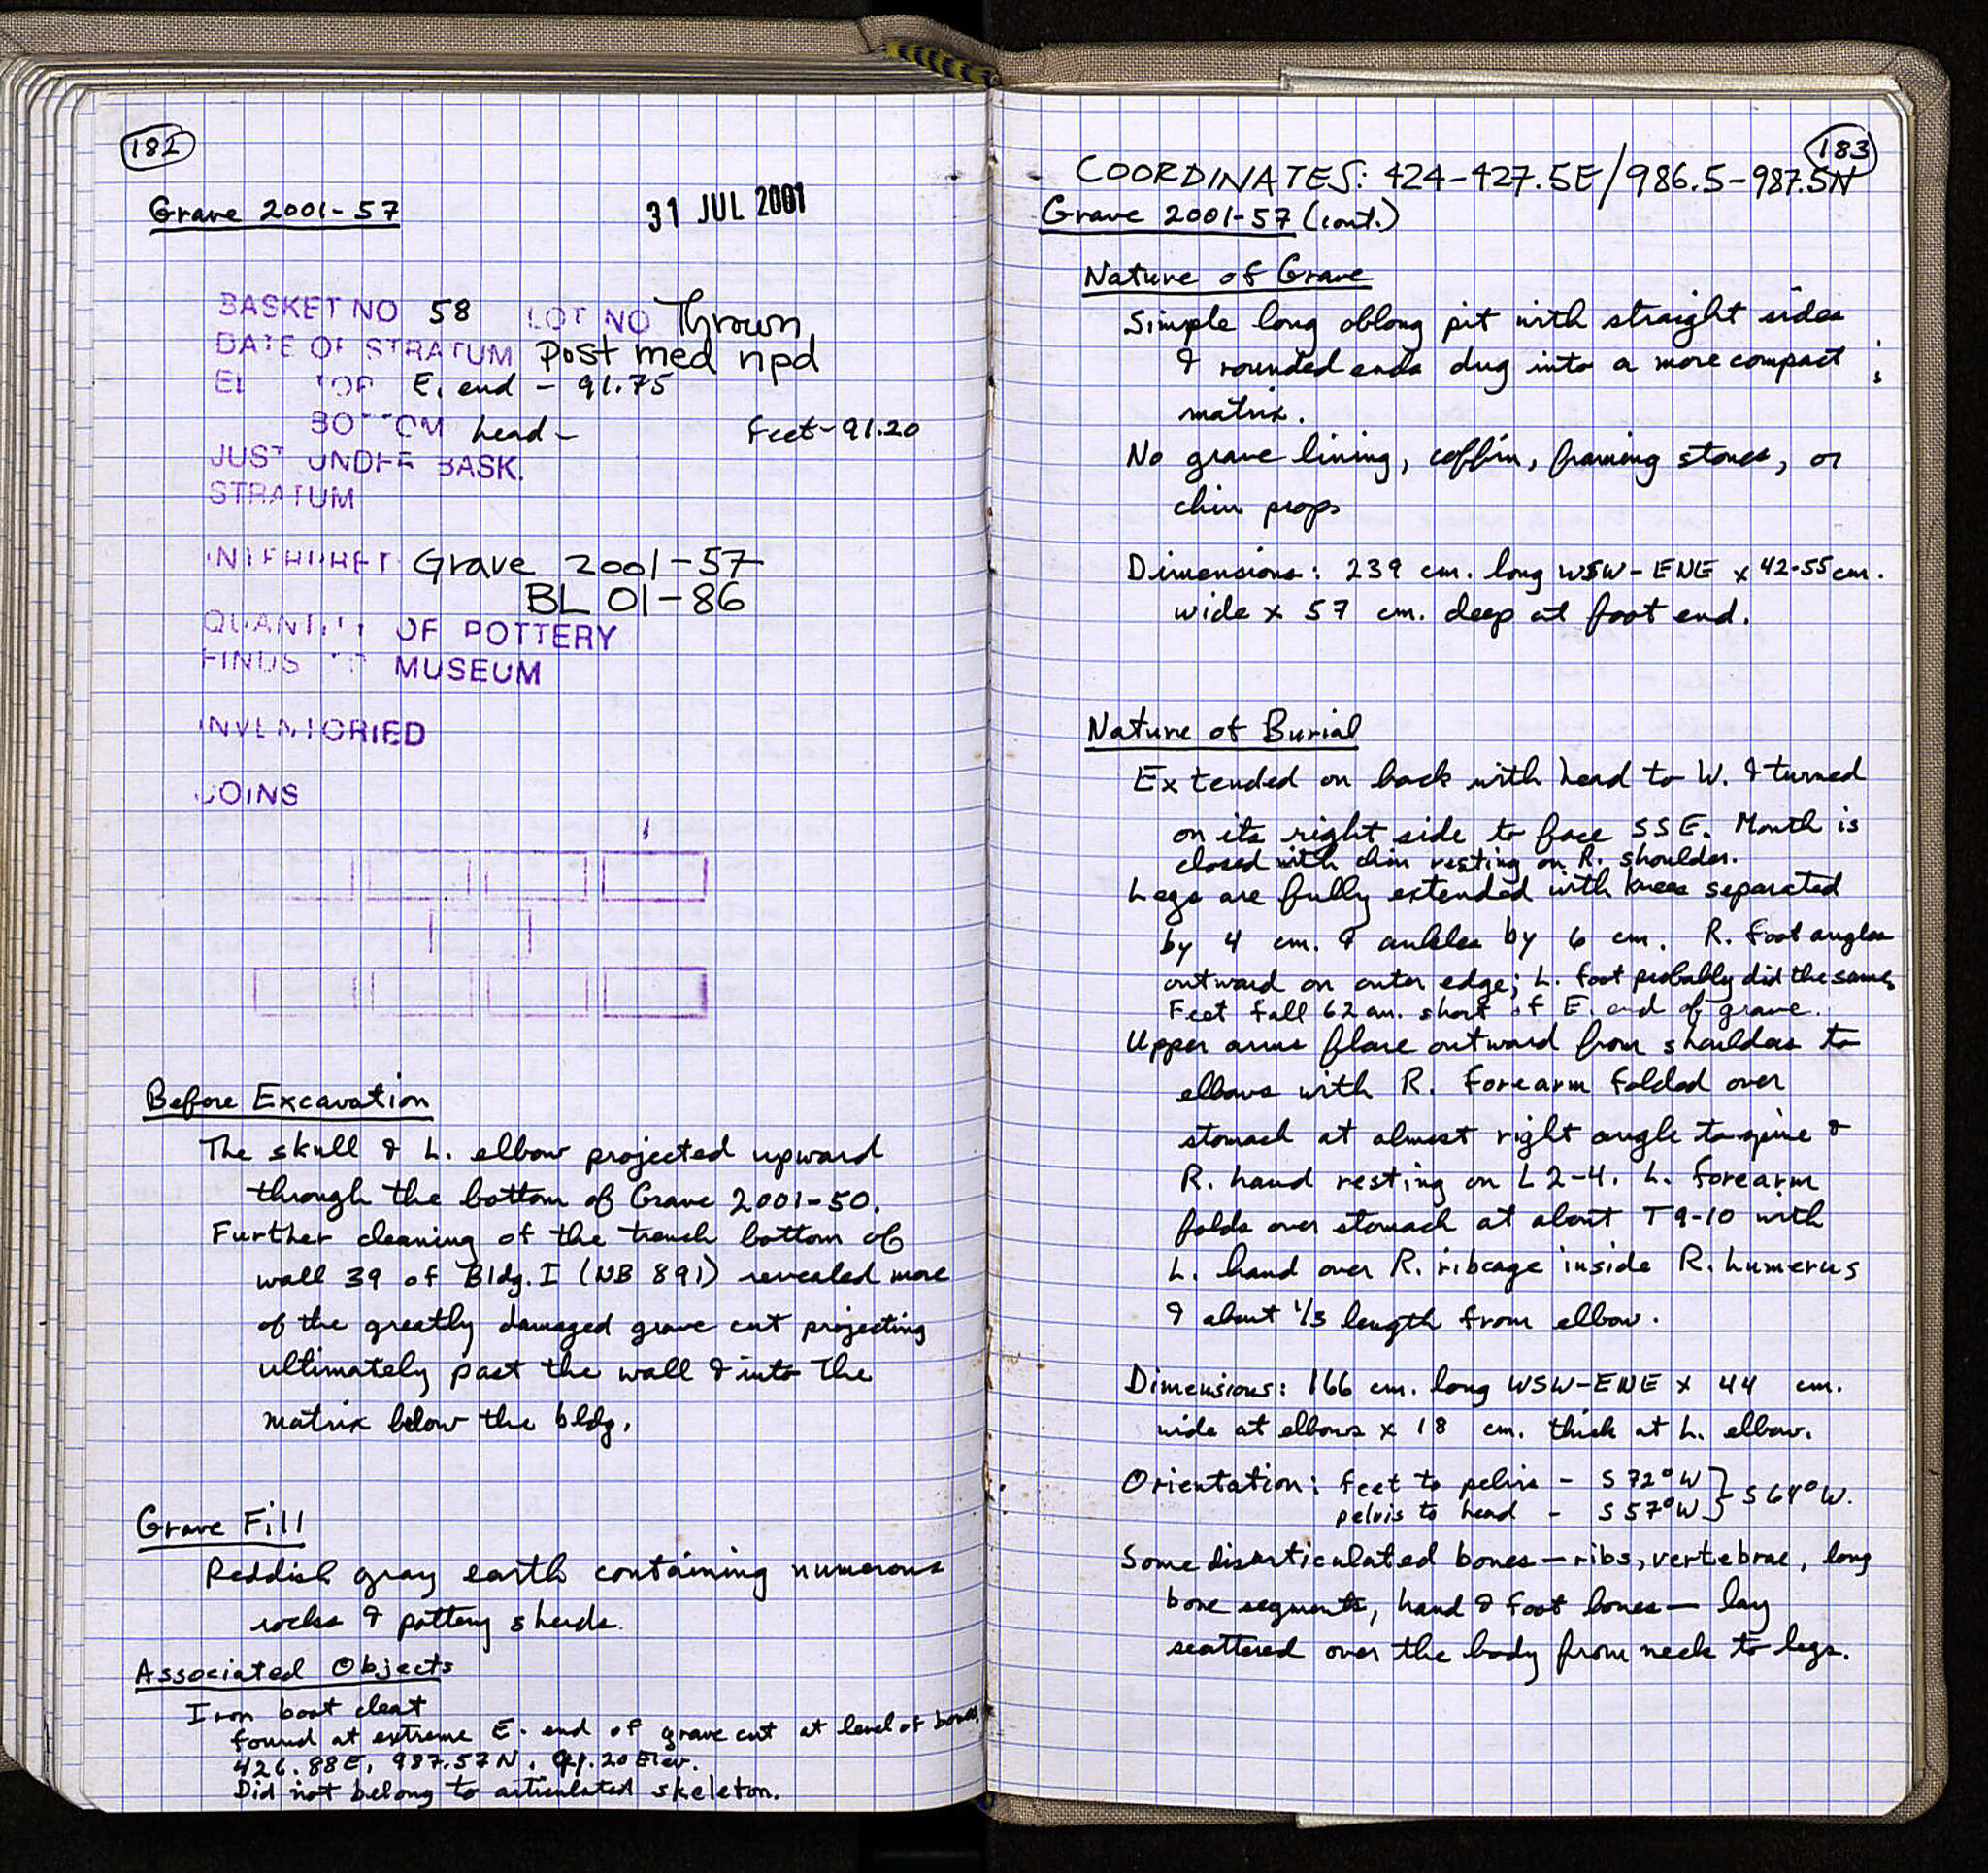 182
Grave 2001-57
31 JUL 2001
BASKET NO 58 LOT NO Thrown
DATE OF STRATUM Post med npd
EL TOP E. end - 91.75
BOTTOM head- feet-91.20
JUST UNDER BASK.
STRATUM
INTERPRET Grave 2001-57
BL 01-86
QUANTITY OF POTTERY
FINDS TO MUSEUM
INVENTORIED
COINS
Before Excavation
The skull & L. elbow projected upward
through the bottom of Grave 2001-50.
Further cleaning of the trench bottom of
wall 39 of Bldg. I (NB 891) revealed more
of the greatly damaged grave cut projecting
ultimately past the wall & into the
matrix below the bldg.
Grave Fill
Reddish gray earth containing numerous
rocks & pottery sherds.
Associated Objects
Iron boot cleat
found at extreme E. end of grave cut at level of bones,
426.88E, 987.57N, 91.20 Elev.
Did not belong to articulated skeleton.
183
COORDINATES: 424-427.5E/986.5-987.5N
Grave 2001-57 (cont.)
Nature of Grave
Simple long oblong pit with straight sides
& rounded ends dug into a more compact
matrix.
No grave lining, coffin, framing stones, or
chin props
Dimensions: 239 cm. long WSW-ENE x 42-55 cm.
wide x 57 cm. deep at foot end.
Nature of Burial
Extended on back with head to W. & turned
on its right side to face SSE. Mouth is
closed with chin resting on R. shoulder.
Legs are fully extended with knees separated
by 4 cm. & ankles by 6 cm. R. foot angles
outward on outer edge; L. foot probably did the same.
Feet fall 62 cm. short of E. end of grave.
Upper arms flare outward from shoulders to
elbows with R. forearm folded over
stomach at almost right angle to spine &
R. hand resting on L2-4. L. forearm
folds over stomach at about T9-10 with
L. hand over R. ribcage inside R. humerus
& about 1/3 length from elbow.
Dimensions: 166 cm. long WSW-ENE x 44 cm.
wide at elbows x 18 cm. thick at L. elbow.
Orientation: feet to pelvis - S72°W } S64°W.
pelvis to head - S57°W
Some disarticulated bones - ribs, vertebrae, long
bone segments, hand & foot bones - lay
scattered over the body from neck to legs.